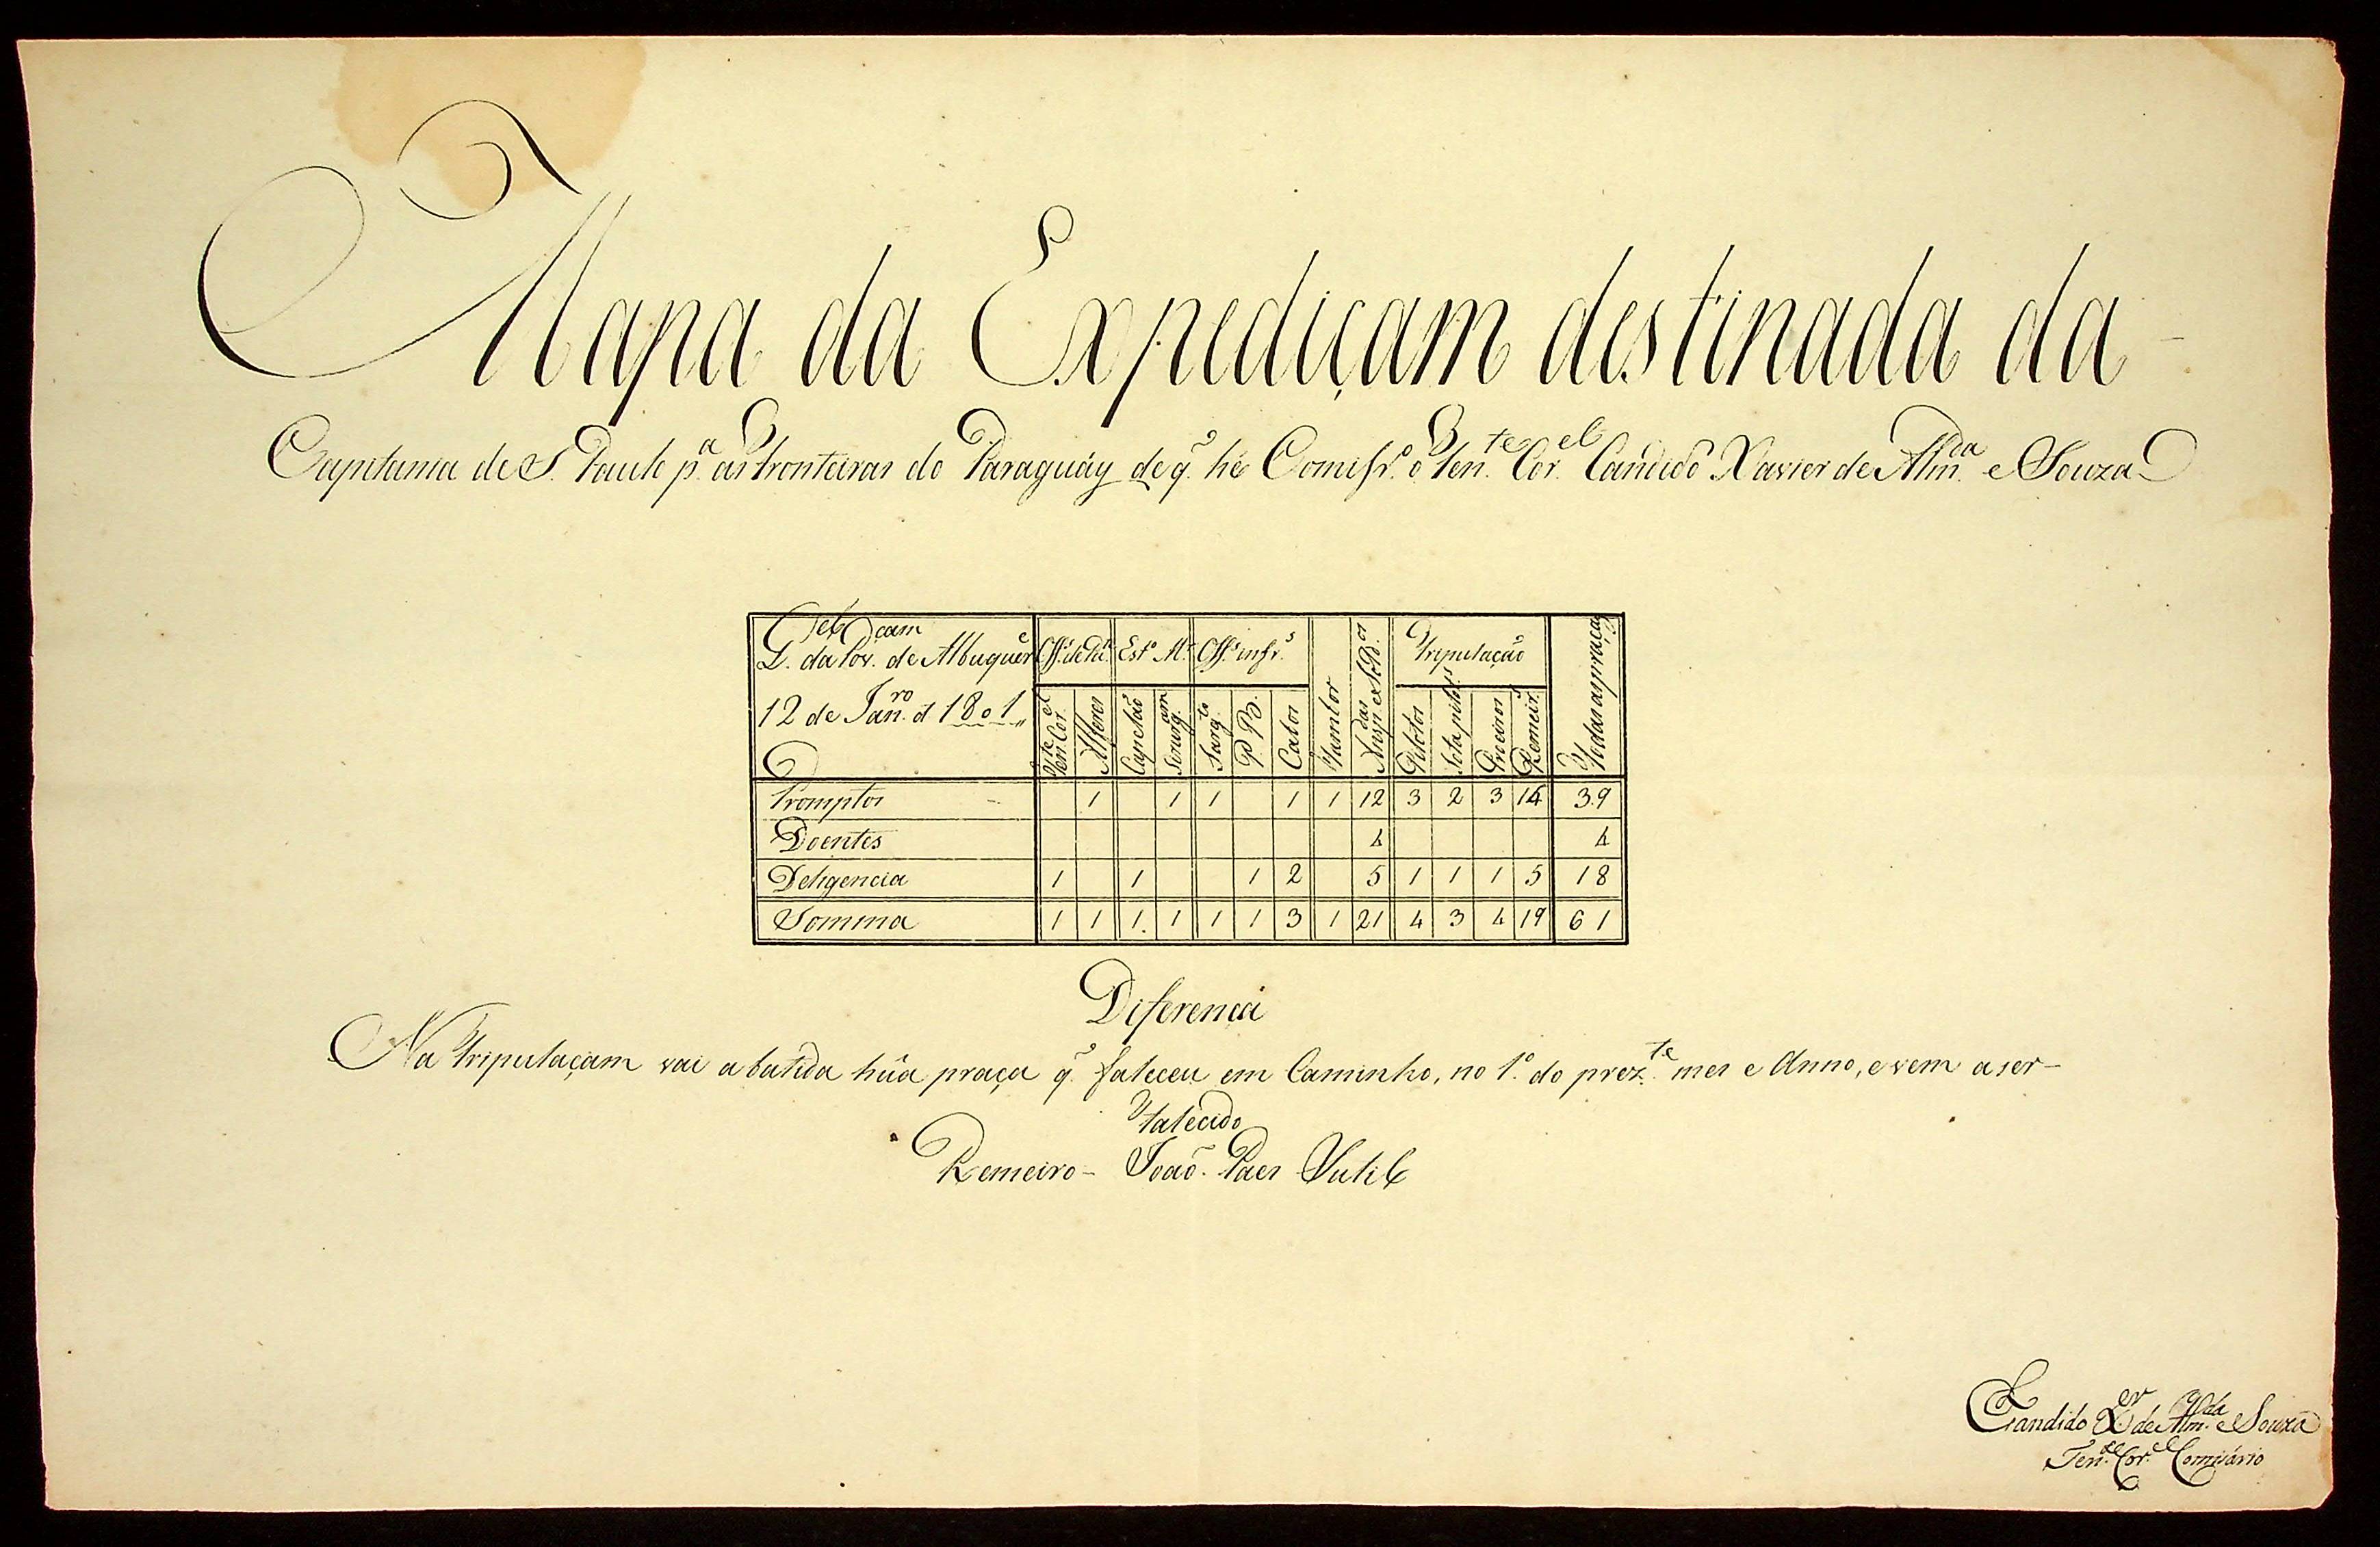 Mapa da Expediçam destinada da
Capitania de S. Paulo pª as Fronteiras do Paraguáy de q̃ hé Comissrº o Ten.te Cor.el Candido Xavier de Alm.da e Souza
L. da Pov. de Albuquer
12 de Jan.ro d 1801
Est.º M.r Off.s infr.s Tripulaçaõ
Ten.te Cor.el Alferes Capelaõ Sirurg.am Sarg.to P. B. Cabos Tambor Ansp.das e Sold.os Pilotos Sotapilot.s Proeiros Remeir.s Todas as praças
Promptos 1 1 1 1 1 12 3 2 3 14 39
Doentes 4 4
Deligencia 1 1 1 2 5 1 1 1 5 18
Somma 1 1 1 1 1 1 3 1 21 4 3 4 19 61
Diferença
Na Tripulaçam vai abatida hũa praça q̃ faleceu em Caminho, no 1.º do prez.te mes e Anno, e vem a ser
Falecido
Remeiro - Joaõ Paes Sutil
Candido X.er de Alm.da e Souza
Ten.te Cor.el Comisário